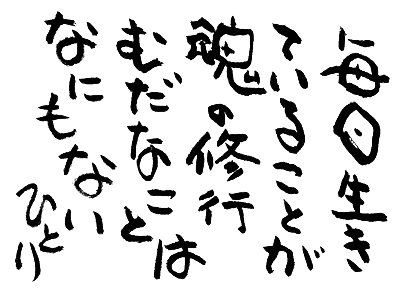 毎日生き
ていることが
魂の修行
むだなことは
なにもない
ひとり